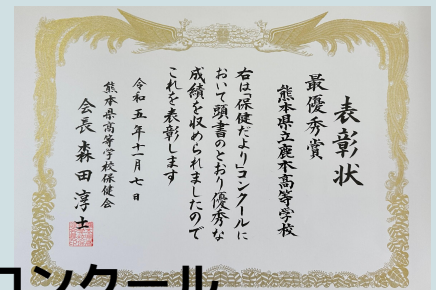 表彰状
最優秀賞
熊本県立鹿本高等学校
右は「保健だより」コンクールに
おいて頭書のとおり優秀な
成績を収められましたので
これを表彰します
令和五年十一月七日
熊本県高等学校保健会
会長 森田淳士
コンクール